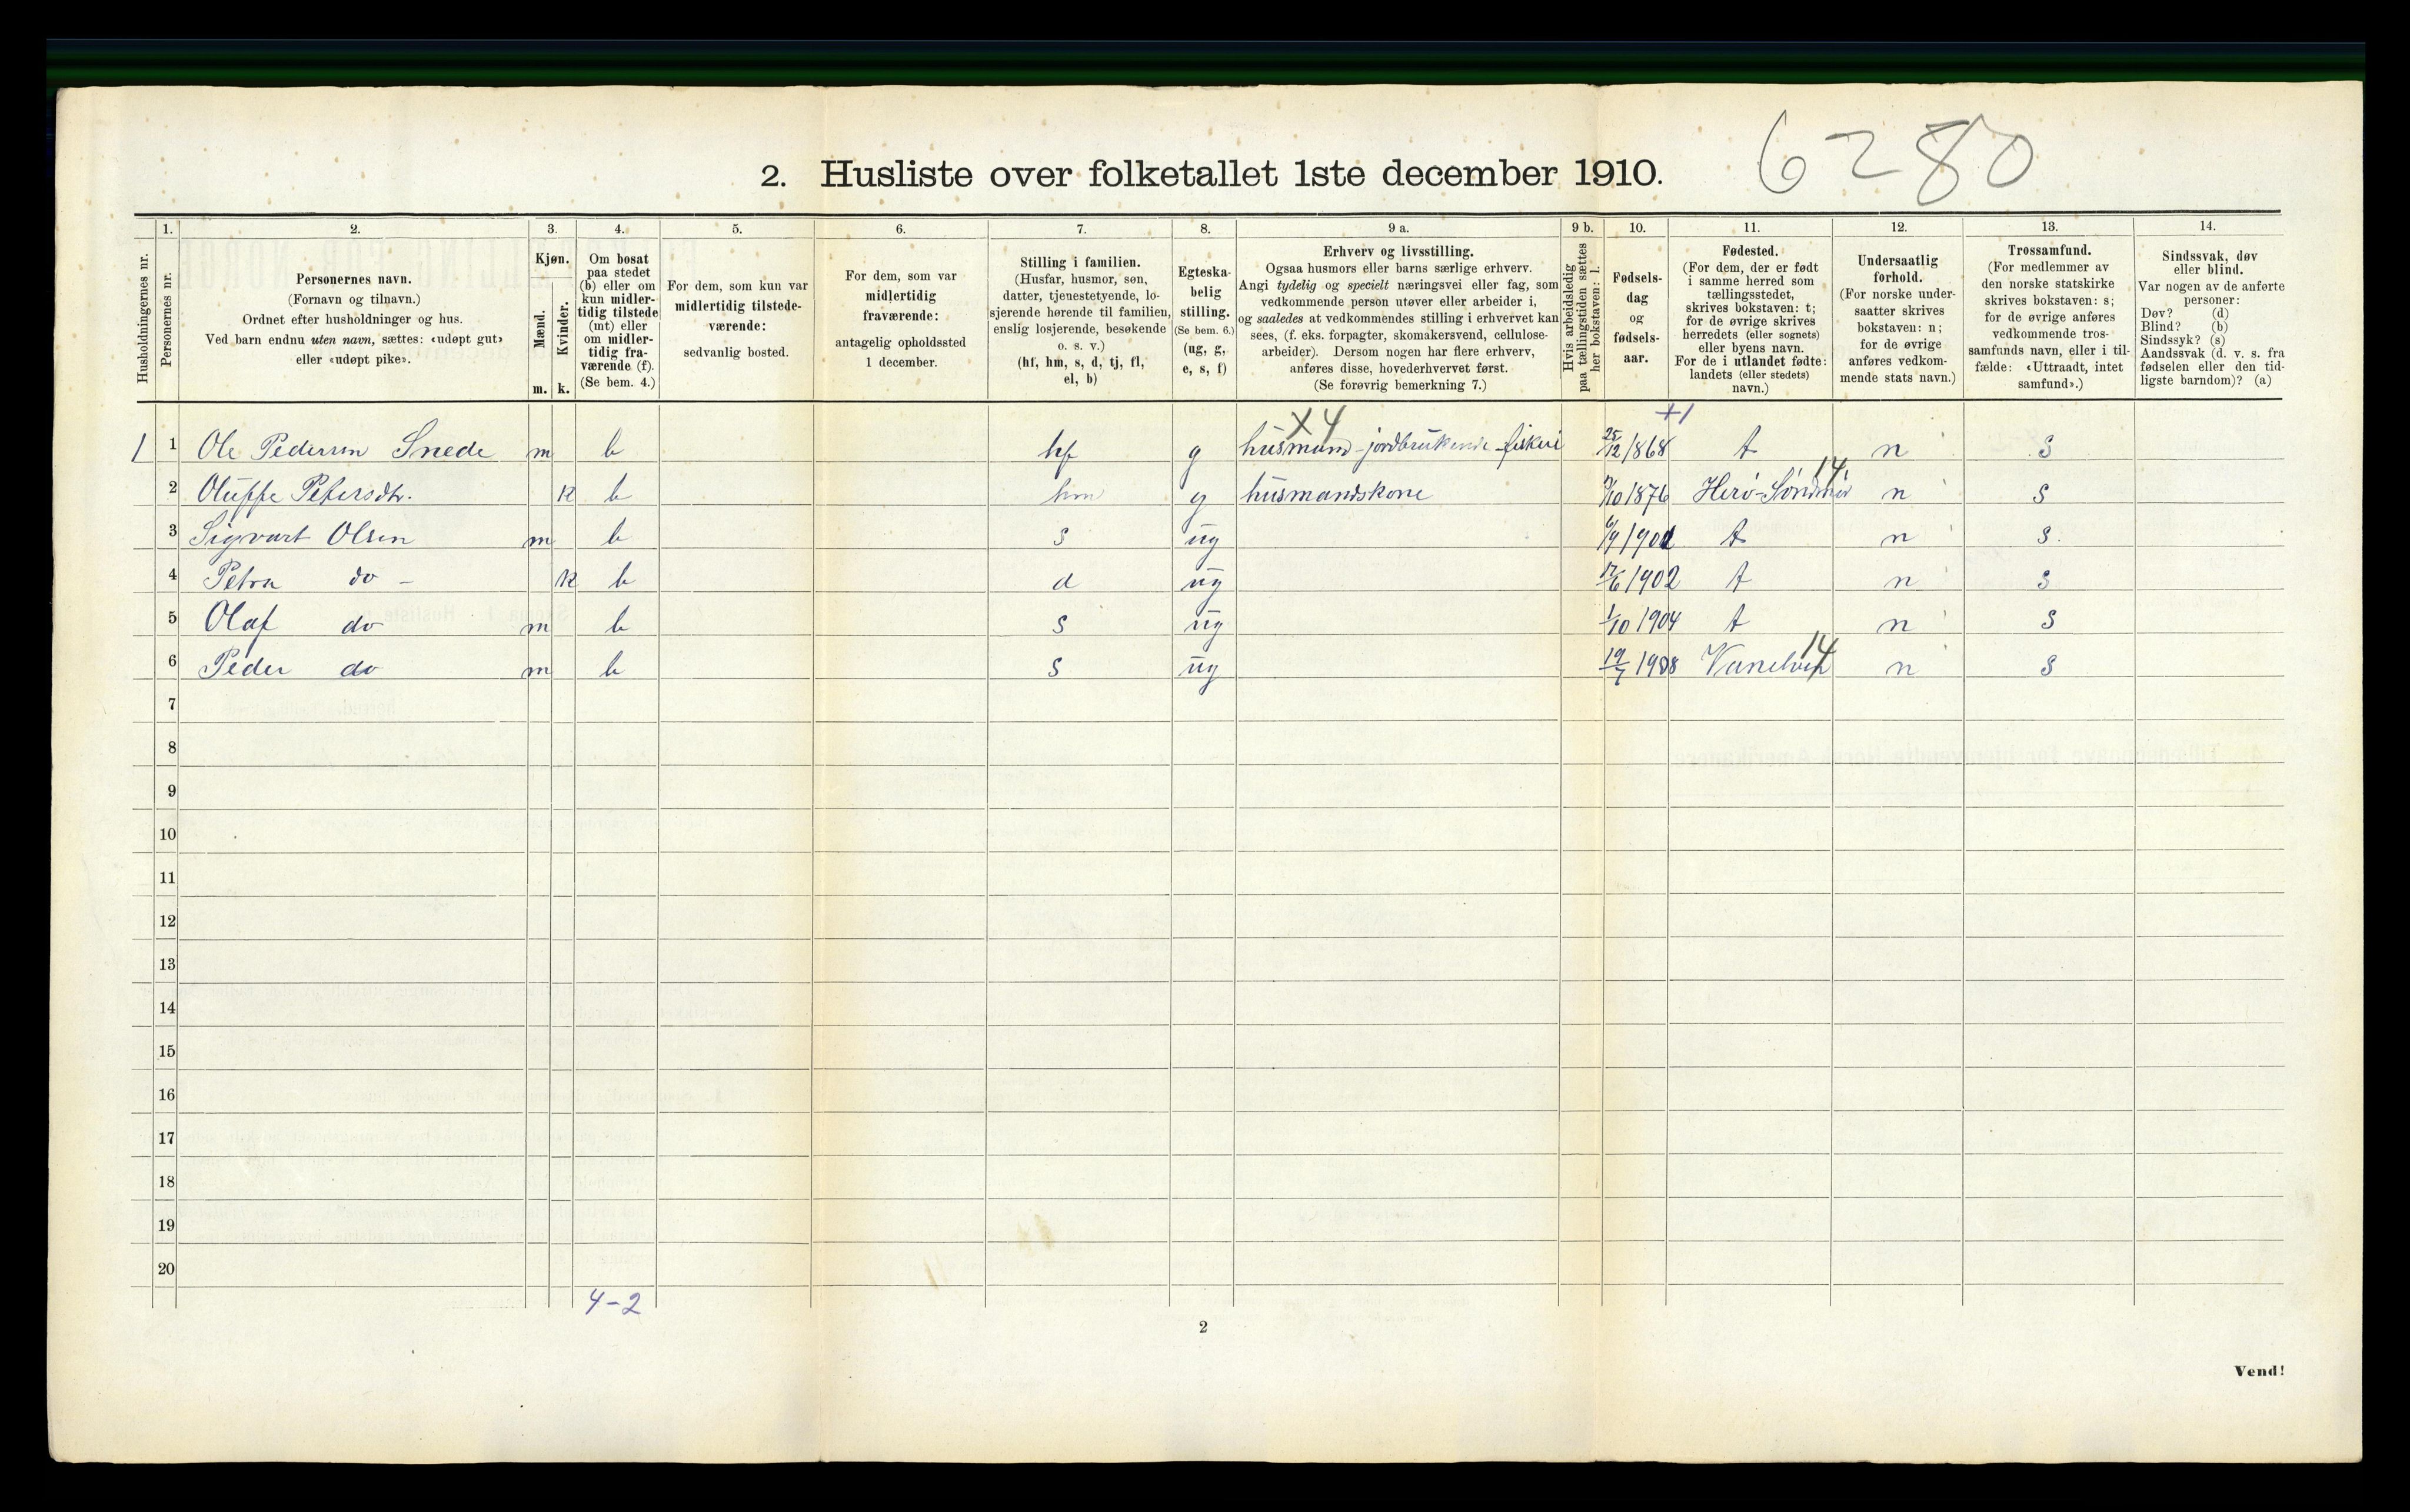 6280
2. Husliste over folketallet 1ste december 1910.
Husholdningernes nr.
1.
Personernes nr.
2.
Personernes navn.
(Fornavn og tilnavn.)
Ordnet efter husholdninger og hus.
Ved barn endnu uten navn, sættes: «udøpt gut»
eller «udøpt pike».
3.
Kjøn.
Mænd.
m.
Kvinder.
k.
4.
Om bosat
paa stedet
(b) eller om
kun midler-
tidig tilstede
(mt) eller
om midler-
tidig fra-
værende (f).
(Se bem. 4.)
5.
For dem, som kun var
midlertidig tilstede-
værende:
sedvanlig bosted.
6.
For dem, som var
midlertidig
fraværende:
antagelig opholdssted
1 december.
7.
Stilling i familien.
(Husfar, husmor, søn,
datter, tjenestetyende, lo-
sjerende hørende til familien,
enslig losjerende, besøkende
o. s. v.)
(hf, hm, s, d, tj, fl,
el, b)
8.
Egteska-
belig
stilling.
(Se bem. 6.)
(ug, g,
e, s, f)
9 a.
Erhverv og livsstilling.
Ogsaa husmors eller barns særlige erhverv.
Angi tydelig og specielt næringsvei eller fag, som
vedkommende person utøver eller arbeider i,
og saaledes at vedkommendes stilling i erhvervet kan
sees, (f. eks. forpagter, skomakersvend, cellulose-
arbeider). Dersom nogen har flere erhverv,
anføres disse, hovederhvervet først.
(Se forøvrig bemerkning 7.)
9 b.
Hvis arbeidsledig
paa tællingstiden sættes
her bokstaven: l.
10.
Fødsels-
dag
og
fødsels-
aar.
11.
Fødested.
(For dem, der er født
i samme herred som
tællingsstedet,
skrives bokstaven: t;
for de øvrige skrives
herredets (eller sognets)
eller byens navn.
For de i utlandet fødte:
landets (eller stedets)
navn.)
12.
Undersaatlig
forhold.
(For norske under-
saatter skrives
bokstaven: n;
for de øvrige
anføres vedkom-
mende stats navn.)
13.
Trossamfund.
(For medlemmer av
den norske statskirke
skrives bokstaven: s;
for de øvrige anføres
vedkommende tros-
samfunds navn, eller i til-
fælde: «Uttraadt, intet
samfund».)
14.
Sindssvak, døv
eller blind.
Var nogen av de anførte
personer:
Døv? (d)
Blind? (b)
Sindssyk? (s)
Aandssvak (d. v. s. fra
fødselen eller den tid-
ligste barndom)? (a)
X4 +1
1 1 Ole Pedersen Snede m b hf g husmand-jordbrukende-fiskeri 25/12 1868 t n s
14
2 Oluffe Petersdtr. k b hm g husmandskone /10 1876 Herö-Söndmör n s
3 Sigvart Olsen m b s ug 6/9 1901 t n s.
4 Petra do - k b d ug 17/6 1902 t n s
5 Olaf do m b s ug 1/10 1904 t n s
14
6 Peder do m b s ug 19/7 1908 Vanelven n s
7
8
9
10
11
12
13
14
15
16
17
18
19
20
4-2
2
Vend!